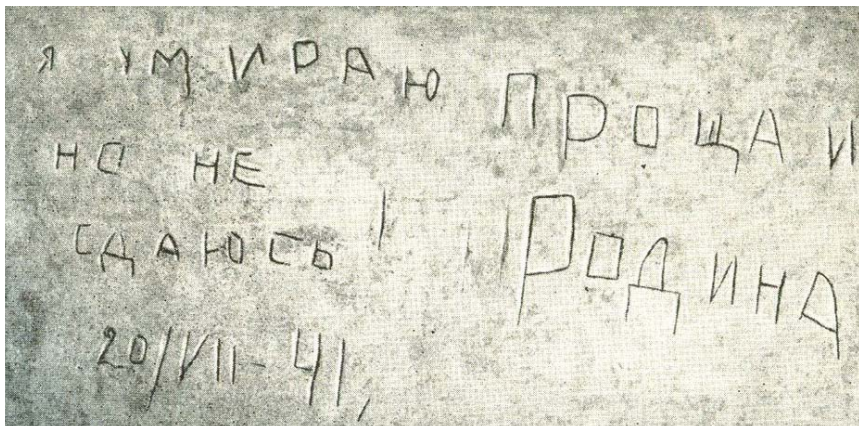 я умираю
но не
сдаюсь!
Прощай
Родина
20/VII-41,